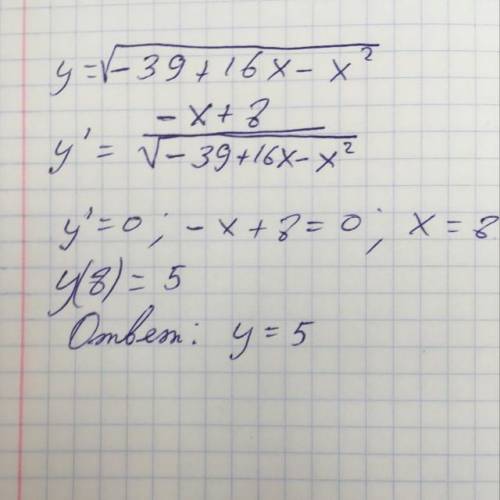 y = √(-39 + 16x - x²)
y' = (-x + 8) / √(-39 + 16x - x²)
y' = 0 ; -x + 8 = 0 ; x = 8
y(8) = 5
Ответ: y = 5